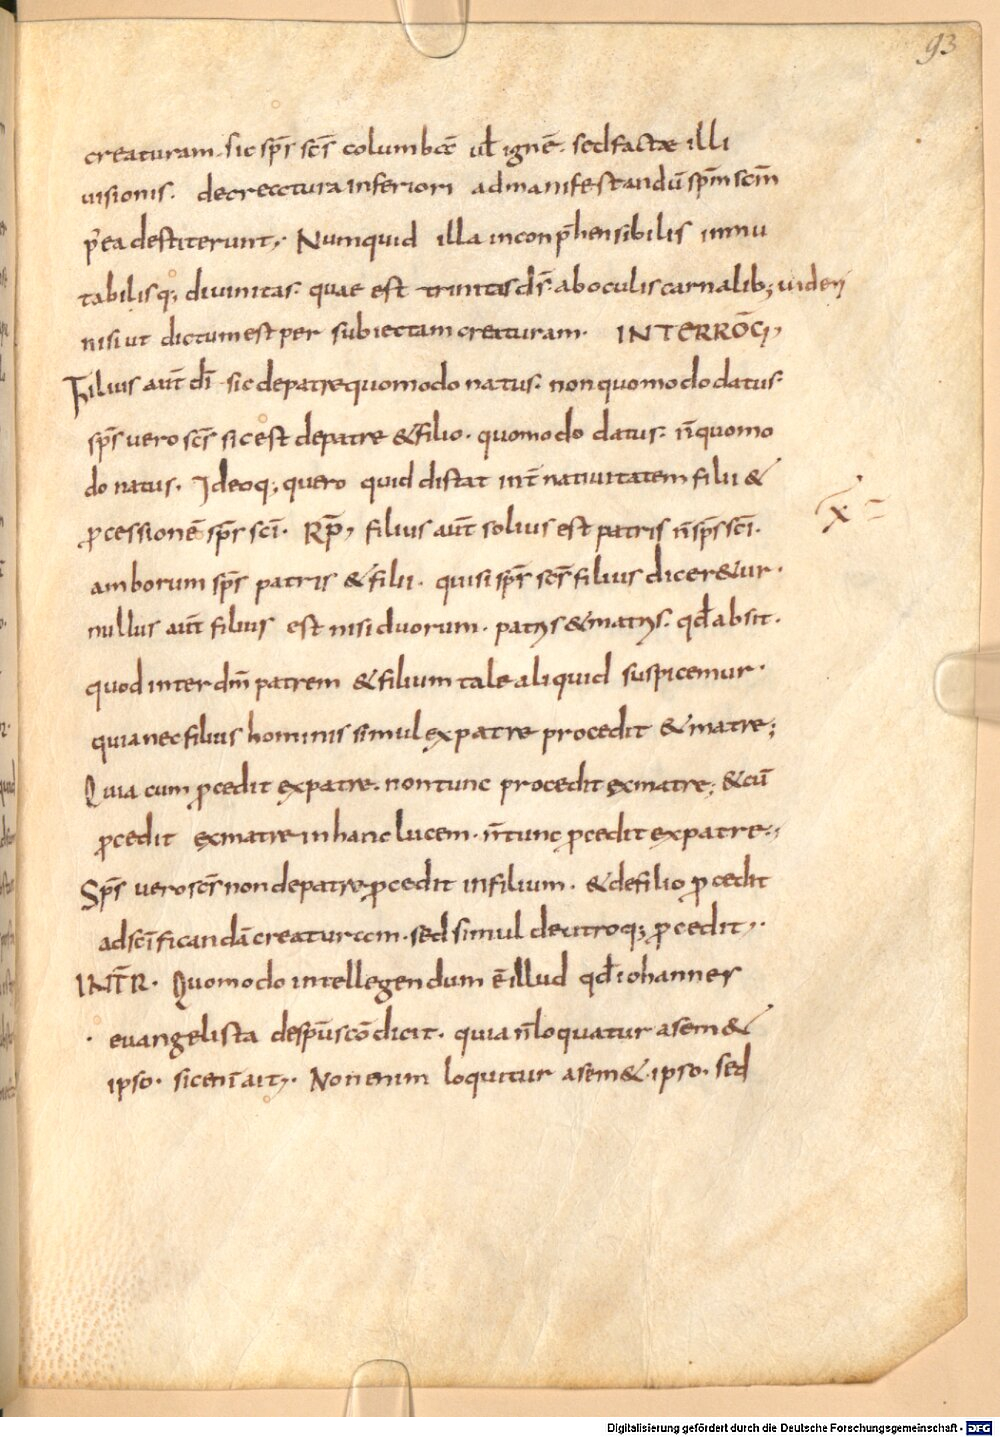 93
creaturam. sic sp̄s sc̄s columbae ul̄ ignē. sed factae illi
uisionis. de creatura inferiori ad manifestandū sp̄m sc̄m
p̄ ea destiterunt; Numquid illa inconp̄hensibilis inmu
tabilisq; diuinitas. quae est trinitas d̄s. ab oculis carnalib; uideri
nisi ut dictum est per subiectam creaturam. INTERROḠ;
Filius aūt dī sic de patre quomodo natus. non quomodo datus.
sp̄s uero sc̄s sic est de patre & filio. quomodo datus. n̄ quomo
do natus. Ideoq; quero quid distat int̄ natiuitatem filii &
ꝓcessionē sp̄s scī. Rp̄, filius aūt solius est patris n̄ sp̄s scī.
amborum sp̄s patris & filii. qui si sp̄s sc̄s filius dicer&ur.
nullus aūt filius est nisi duorum. patris & matris. qđ absit.
quod inter dm̄ patrem & filium tale aliquid suspicemur.
quia nec filius hominis simul ex patre procedit & matre;
Quia cum ꝓcedit ex patre. non tunc procedit ex matre; & cū
ꝓcedit ex matre in hanc lucem. n̄ tunc ꝓcedit ex patre;
Sp̄s uero sc̄s non de patre ꝓcedit in filium. & de filio ꝓcedit
ad sc̄ificandā creaturam. sed simul de utroq; ꝓcedit;
INT̄R. Quomodo intellegendum ē illud qđ iohannes
euangelista de sp̄u scō dicit. quia n̄ loquatur a sem&
ipso. sic enī ait; Non enim loquitur a sem& ipso. sed
Digitalisierung gefördert durch die Deutsche Forschungsgemeinschaft - DFG